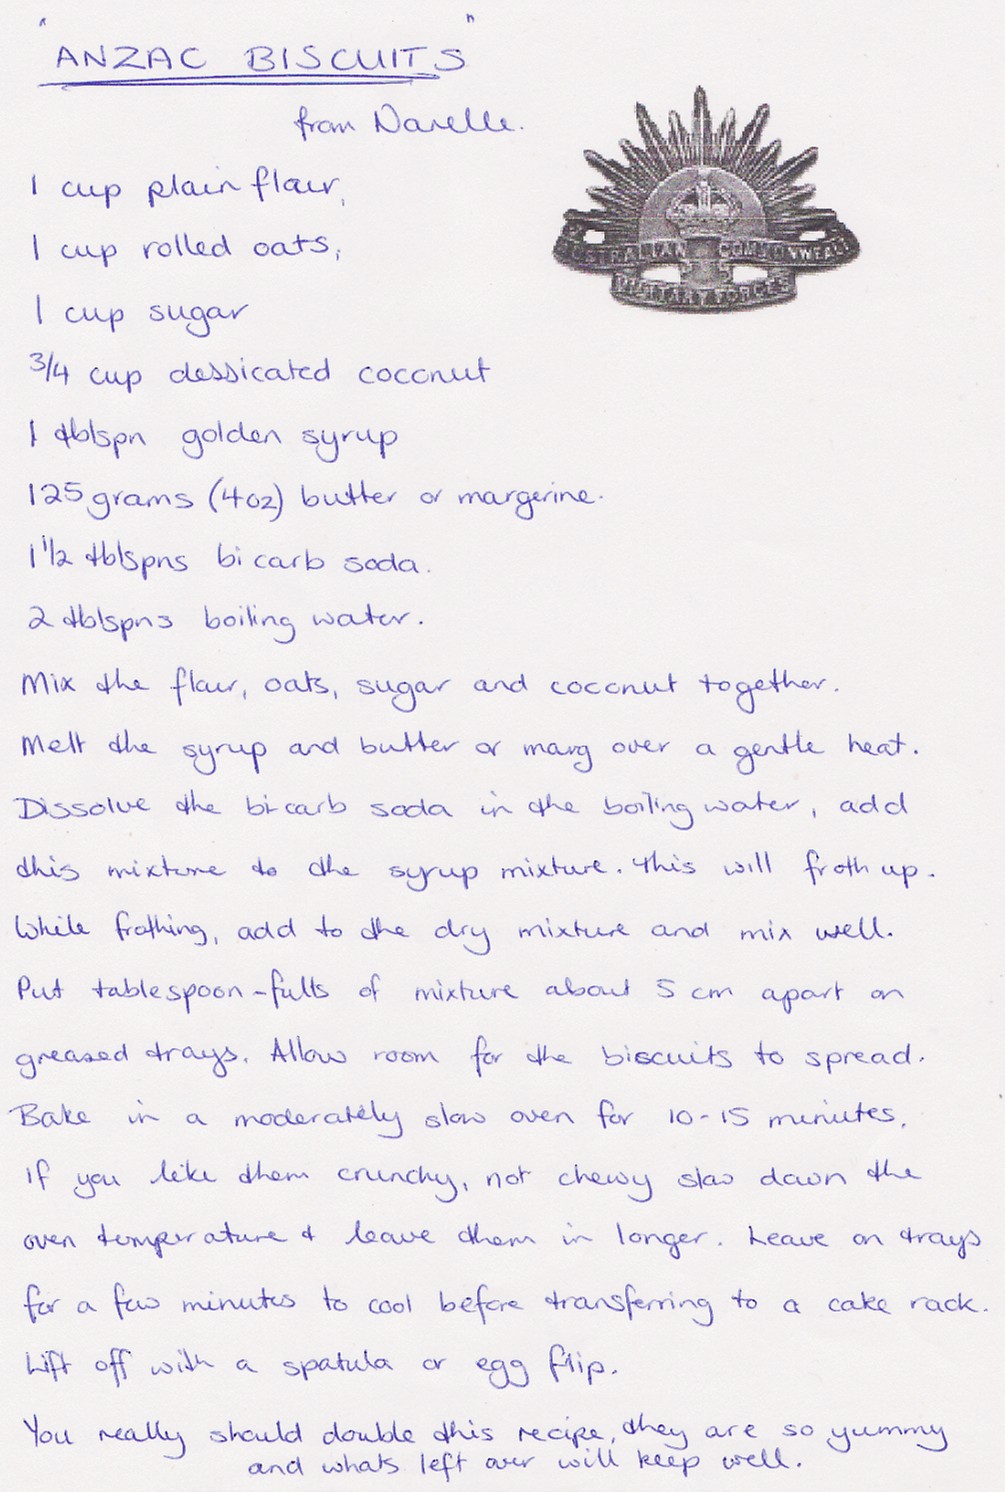 "ANZAC BISCUITS"
from Narelle.
1 cup plain flour,
1 cup rolled oats,
1 cup sugar
3/4 cup dessicated coconut
1 tblspn golden syrup
125 grams (4oz) butter or margerine.
1 1/2 tblspns bicarb soda.
2 tblspns boiling water.
AUSTRALIAN COMMONWEALTH
MILITARY FORCES
Mix the flour, oats, sugar and coconut together.
Melt the syrup and butter or marg over a gentle heat.
Dissolve the bicarb soda in the boiling water, add
this mixture to the syrup mixture. This will froth up.
While frothing, add to the dry mixture and mix well.
Put tablespoon-fulls of mixture about 5 cm apart on
greased trays. Allow room for the biscuits to spread.
Bake in a moderately slow oven for 10-15 minutes.
If you like them crunchy, not chewy slow down the
oven temperature & leave them in longer. Leave on trays
for a few minutes to cool before transferring to a cake rack.
Lift off with a spatula or egg flip.
You really should double this recipe, they are so yummy
and whats left over will keep well.